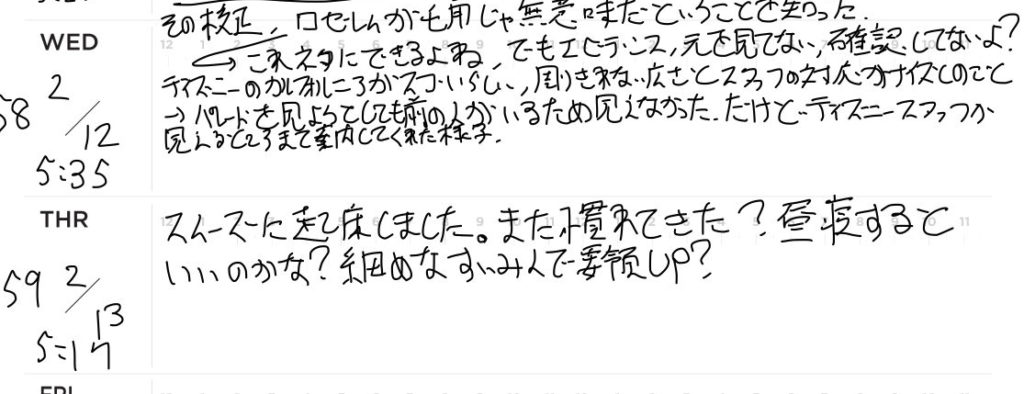 その校正, 口
WED
これネタにできるよね, でもエビデンス, 元を見てない, 確認してないよ?
2/12
ディズニーの
周りきれない広さとスタッフの対応がナイスとのこと
58
→ パレードを見ようとしても前の人がいるため見えなかった. だけどディズニースタッフが
見えるところまで案内してくれた様子.
5:35
THR
スムーズに起床しました。また慣れてきた?昼寝すると
いいのかな?細めなすいみんで要領UP?
59 2/13
5:17
FRI